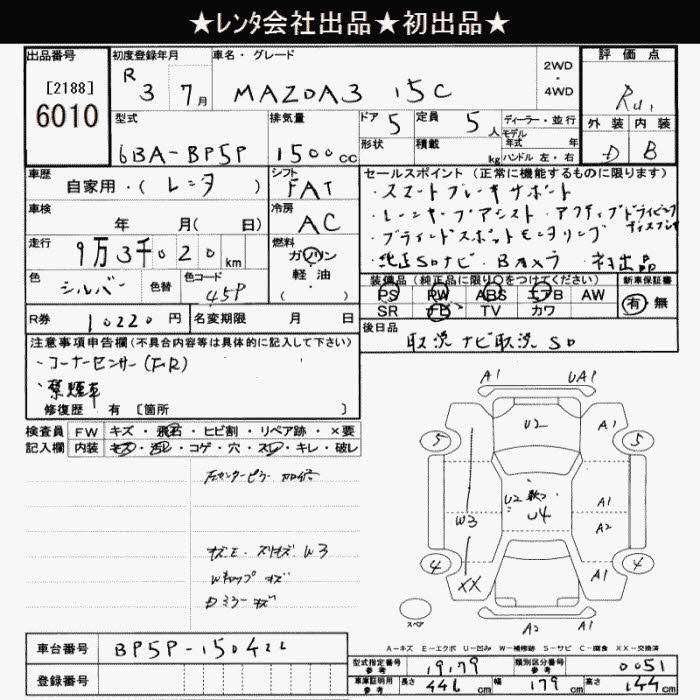 ★レンタ会社出品★初出品★
出品番号 初度登録年月 車名・グレード 2WD・4WD 評価点
[2188] R3 7月 MAZDA3 15C
6010
型式 排気量 ドア 5 定員 5人 ディーラー・並行
外装 内装
6BA-BP5P 1500cc 形状 積載 kg モデル年式 年
ハンドル 左・右 D B
車歴 シフト セールスポイント(正常に機能するものに限ります)
自家用・(レンタ) FAT ・スマートブレーキサポート
車検 冷房 ・レーンキープアシスト・アクティブドライビングディスプレイ
年 月(日) AC ・ブラインドスポットモニタリング
走行 燃料 ・純正SDナビ・Bカメラ・初出品
9万3千020km ガソリン・軽油・( )
色 シルバー 色替 色コード 45P
装備品(純正品に限り○をつけてください) 新車保証書
PS PW ABS エアB AW 有・無
SR ナビ TV カワ
R券 10220円 名変期限 月 日
後日品 取説 ナビ取説 SD
注意事項申告欄(不具合内容等は具体的に記入して下さい)
・コーナーセンサー(F,R)
・禁煙車
修復歴 有 [箇所 ]
検査員 FW キズ・飛石・ヒビ割・リペア跡・×要
記入欄 内装 キズ・汚レ・コゲ・穴・スレ・キレ・破レ
A1 UA1
U2 A1
5 5
A1
U2 U4
W3 A2
4 4
XX A1
スペア
A2 A1
W3
Wキャップ キズ
Dミラー キズ
A-キズ E-エクボ U-凹み W-補修跡 S-サビ C-腐食 XX-交換済
車台番号 BP5P-150422
登録番号
型式指定番号 参考 19179 類別区分番号 参考 0051
車庫証明用 参考 長さ 446cm 幅 179cm 高さ 144cm